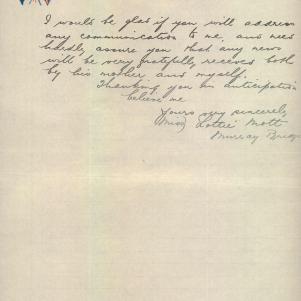 I would be glad if you will address
any communication to me, and need
hardly assure you that any news
will be very gratefully received both
by his mother and myself.
Thanking you in anticipation
believe me
Yours very sincerely
Miss Lottie Mott
Murray Bridge